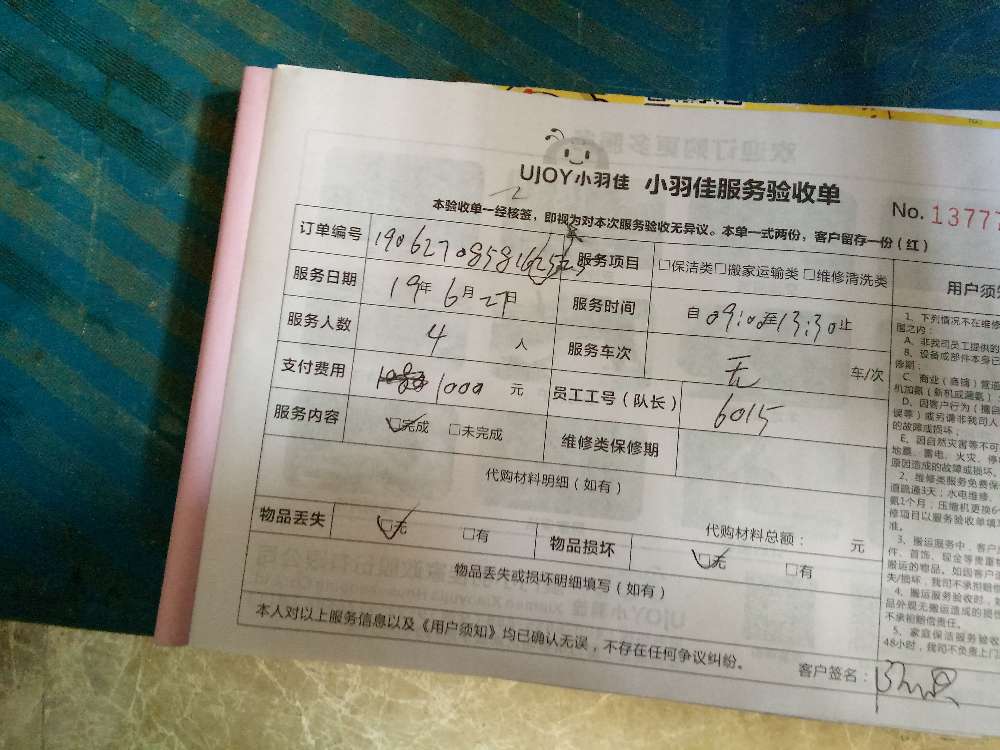 UJOY小羽佳 小羽佳服务验收单
No. 1377
本验收单一经核签，即视为对本次服务验收无异议。本单一式两份，客户留存一份（红）
订单编号
服务项目 □保洁类□搬家运输类□维修清洗类
服务日期 19年 6月 27日 服务时间 自 09:00至13:30止
服务人数 4 人 服务车次 无 车/次
支付费用 1000 元 员工工号（队长） 6015
服务内容 □完成 □未完成 维修类保修期
代购材料明细（如有）
代购材料总额： 元
物品丢失 □无 □有 物品损坏 □无 □有
物品丢失或损坏明细填写（如有）
本人对以上服务信息以及《用户须知》均已确认无误，不存在任何争议纠纷。
客户签名：
用户须知
1、下列情况不在维修
围之内：
A、非我司员工提供的
B、设备或部件本身已
修期；
C、商业（商铺）管道
机加氨（新机或漏氨）
D、因客户行为（擅自
误等）或另请非我司人
的故障或损坏；
E、因自然灾害等不可
地震、雷电、火灾、停电
原因造成的故障或损坏。
2、维修类服务免费保
道疏通3天；水电维修、
氨1个月；压缩机更换6个
修项目以服务验收单填
准。
3、搬运服务中，客户
件、首饰、现金等贵重物
搬运的物品。如因客户
失/损坏，我司不承担赔
4、搬运服务验收时，
品外观无搬运造成的损
不承担赔偿责任。
5、家庭保洁服务验收
48小时，我司不负责上门